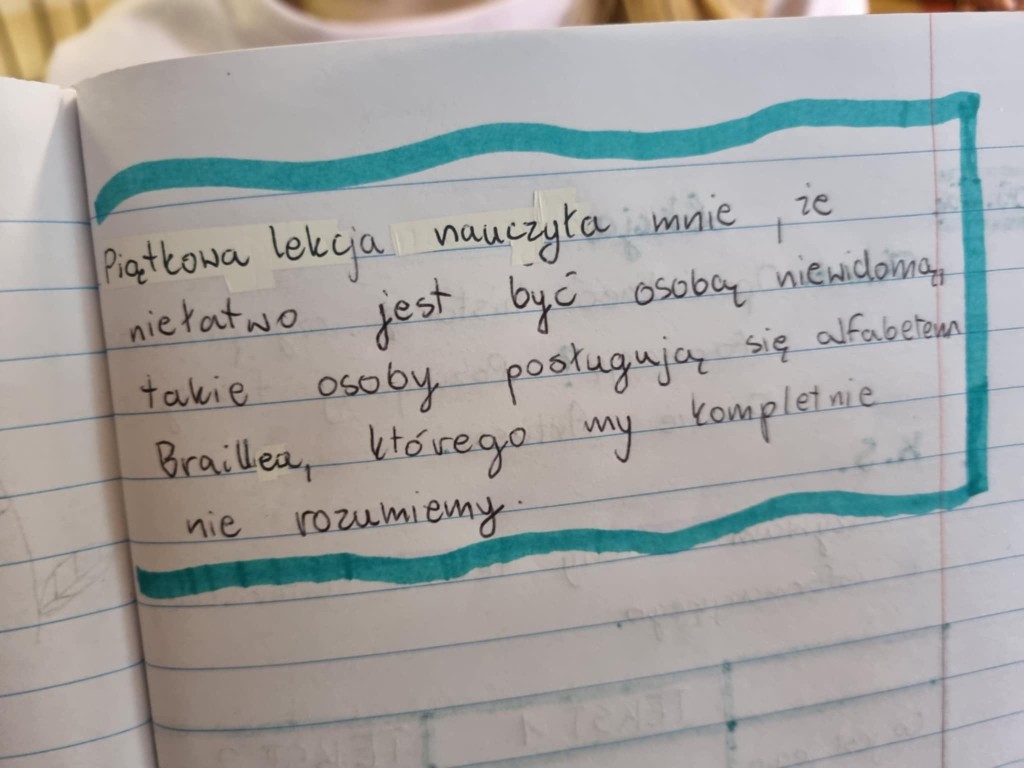 Piątkowa lekcja nauczyła mnie, że
niełatwo jest być osobą niewidomą,
takie osoby posługują się alfabetem
Braillea, którego my kompletnie
nie rozumiemy.